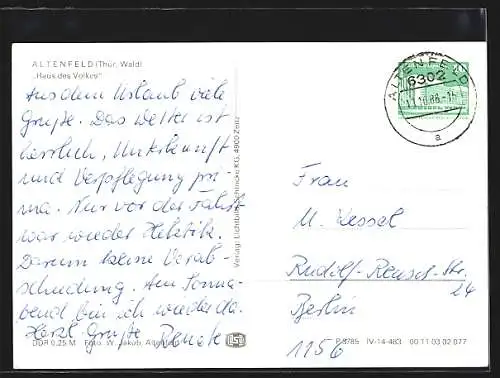 ALTENFELD (Thür. Wald)
„Haus des Volkes"
Aus dem Urlaub viele
Grüße. Das Wetter ist
herrlich, Unterkunft
und Verpflegung pri-
ma. Nur vor der Fahrt
war wieder Hektik.
Darum keine Verab-
schiedung. Am Sonna-
bend bin ich wieder da.
Herzl. Grüße Renate
DDR 0,25 M Foto: W. Jakob, Altenfeld
Verlag: Lichtbild KG, 4900 Zeitz
ALTENFELD
6302
11.10.88
a
Frau
M. Wessel
Rudolf-Renner-Str.
24
Berlin
1156
P 3785 IV-14-483 00 11 03 02 077